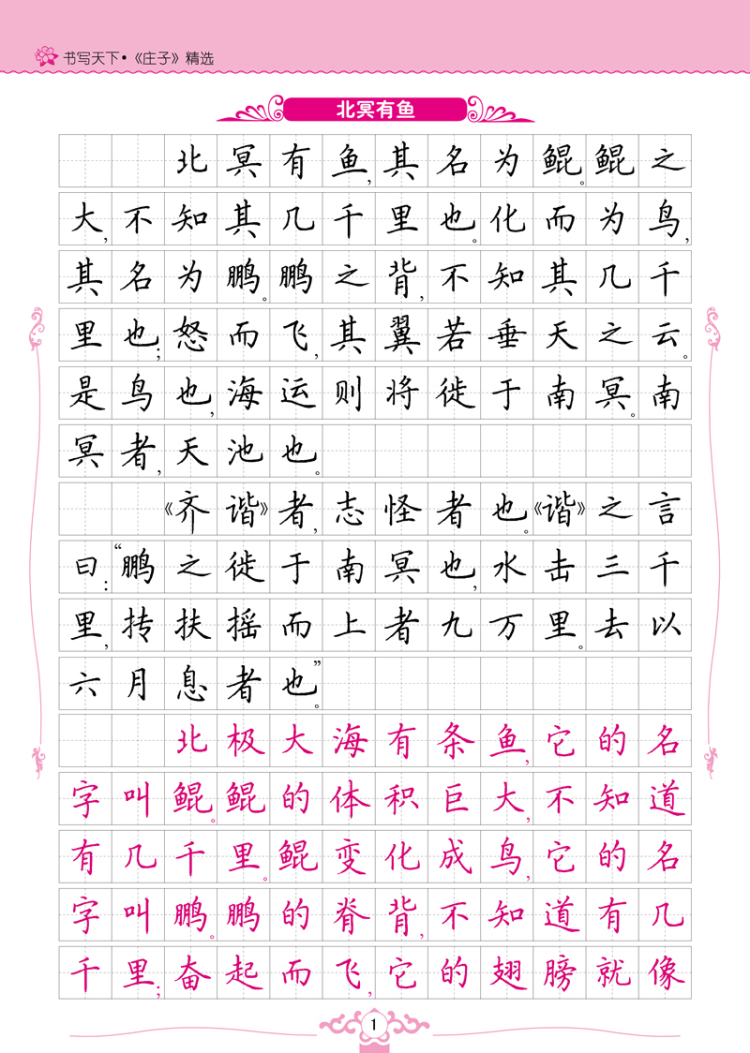 书写天下•《庄子》精选
北冥有鱼
北冥有鱼,其名为鲲。鲲之
大,不知其几千里也。化而为鸟,
其名为鹏。鹏之背,不知其几千
里也;怒而飞,其翼若垂天之云。
是鸟也,海运则将徙于南冥。南
冥者,天池也。
《齐谐》者,志怪者也。《谐》之言
曰:“鹏之徙于南冥也,水击三千
里,抟扶摇而上者九万里。去以
六月息者也”。
北极大海有条鱼,它的名
字叫鲲。鲲的体积巨大,不知道
有几千里。鲲变化成鸟,它的名
字叫鹏。鹏的脊背,不知道有几
千里;奋起而飞,它的翅膀就像
1